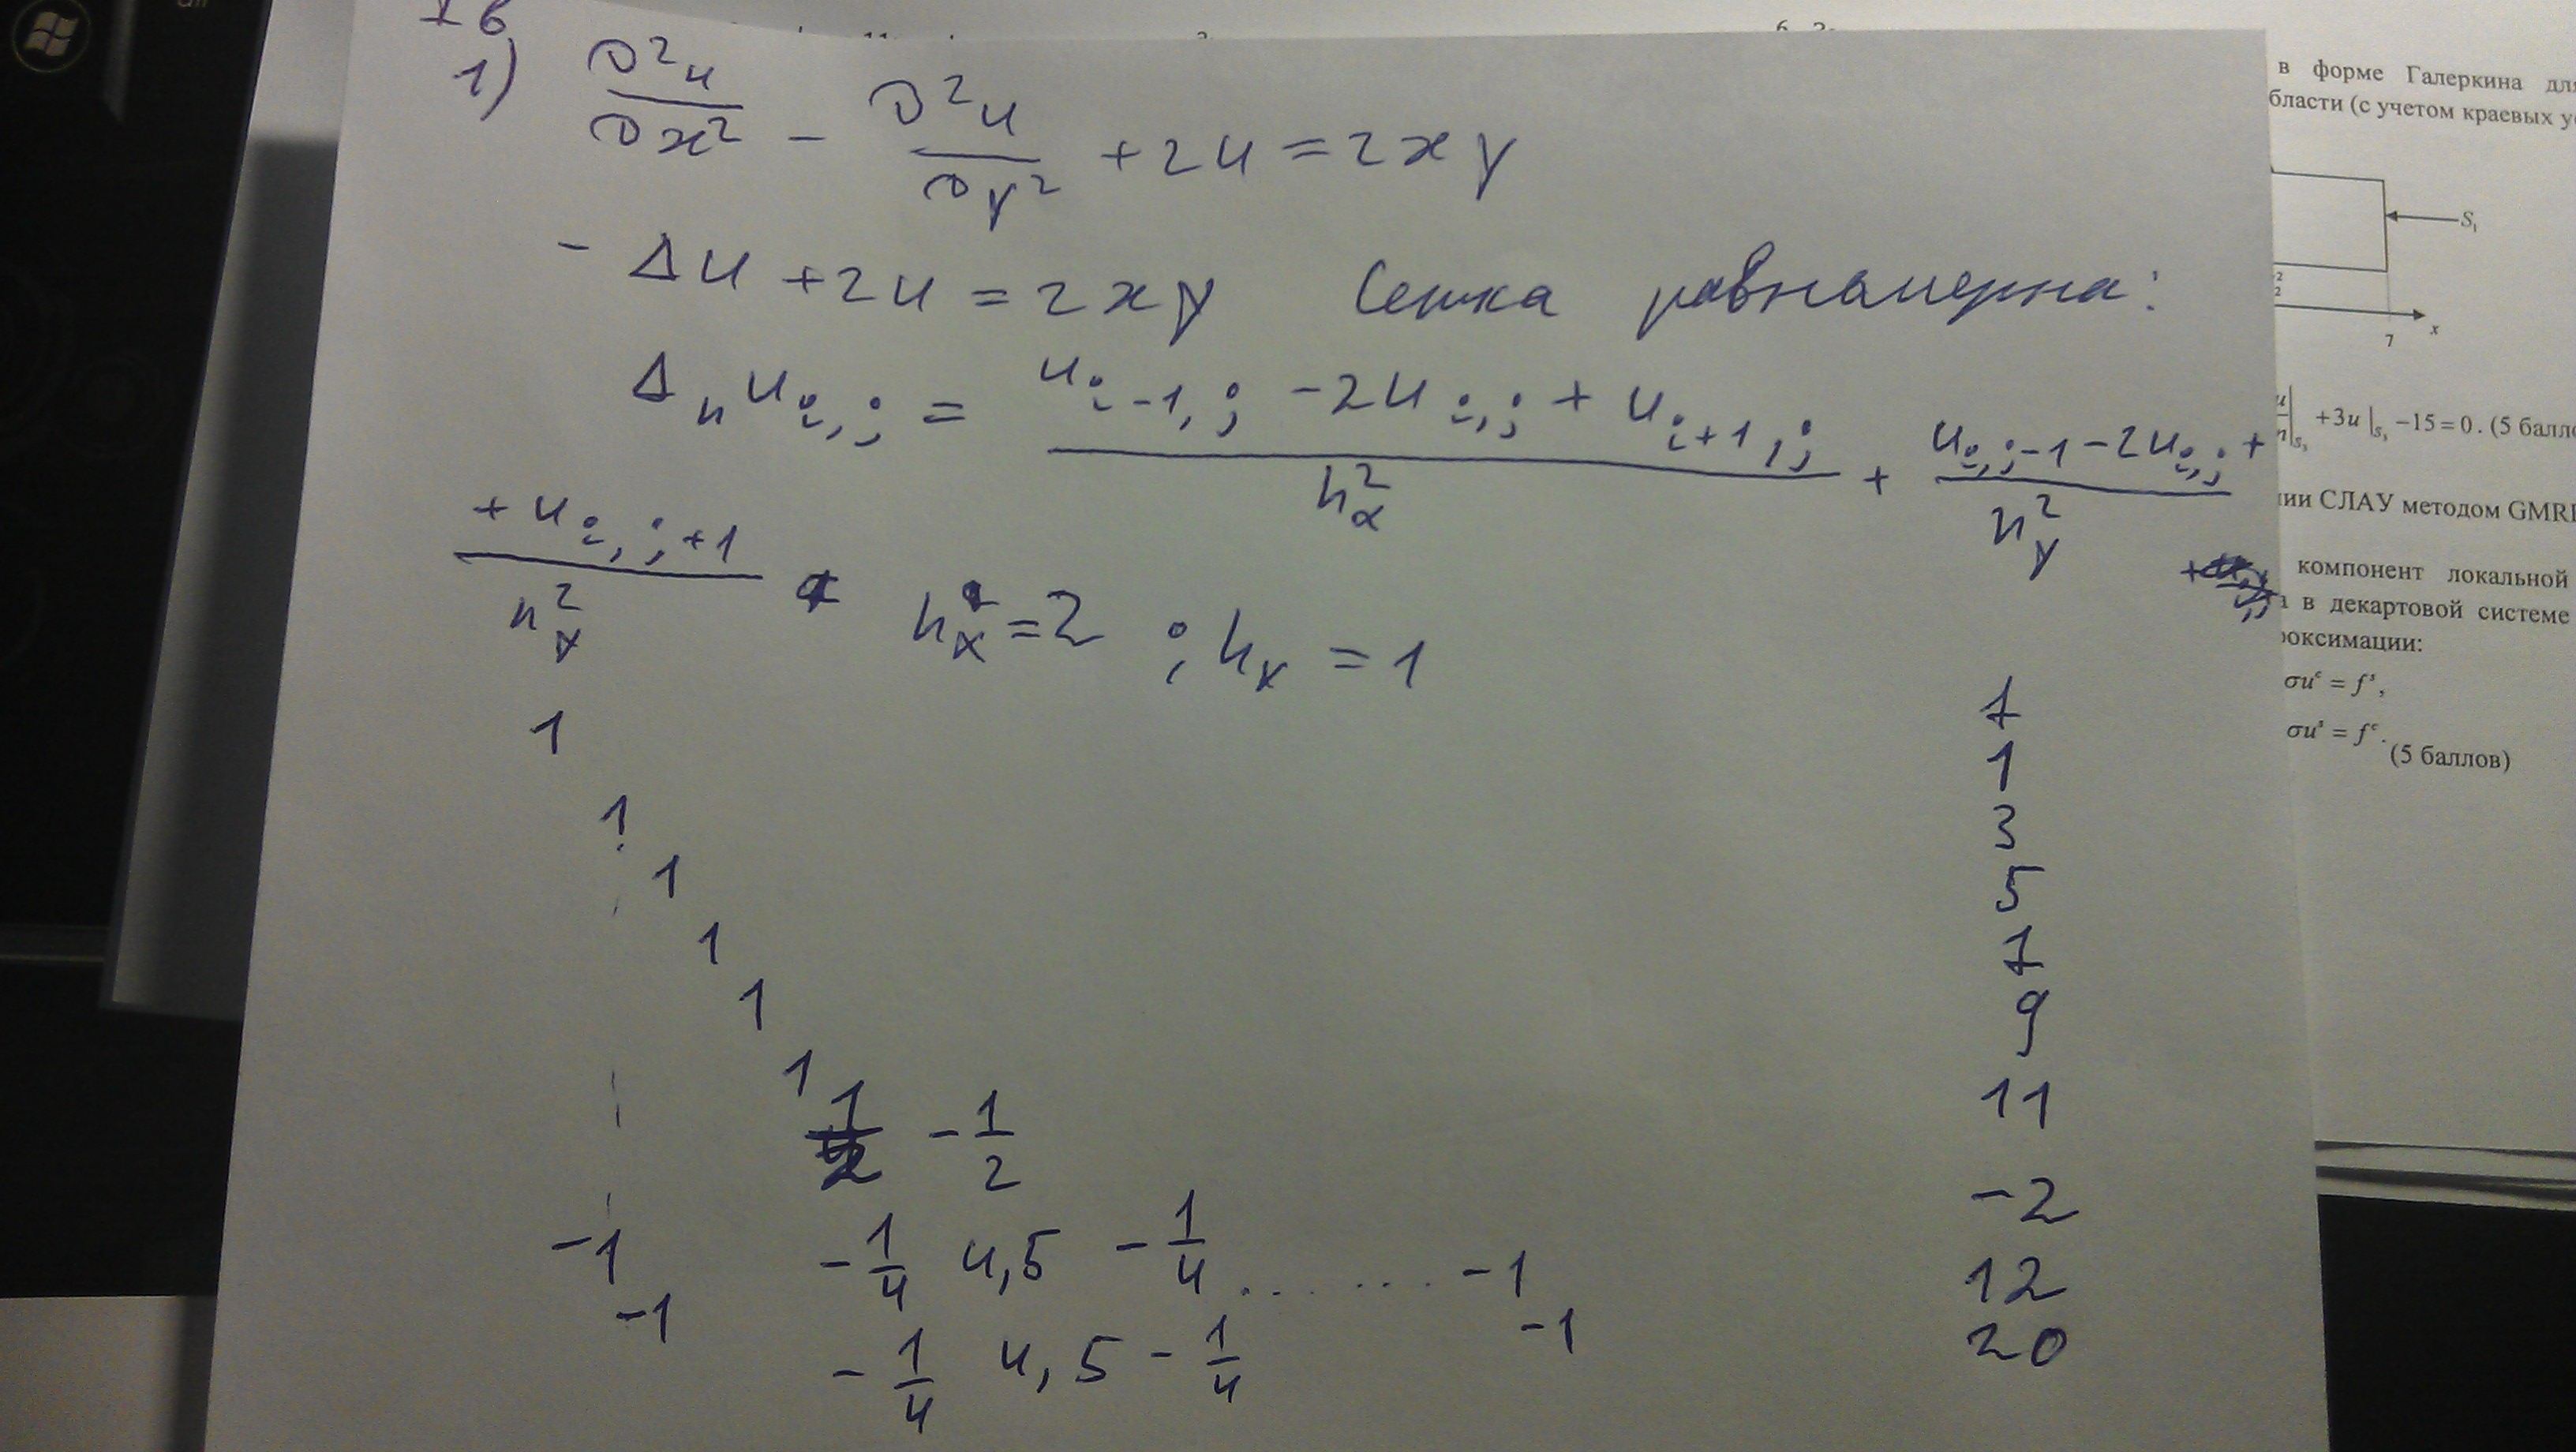 1)
∂²u/∂x² − ∂²u/∂y² + 2u = 2xy
− Δu + 2u = 2xy Сетка равномерна:
Δₕu_{i,j} = (u_{i-1,j} − 2u_{i,j} + u_{i+1,j})/h_x² + (u_{i,j-1} − 2u_{i,j} +
+ u_{i,j+1})/h_y² h_x = 2 ; h_y = 1
1 1
1 1
1 3
1 5
1 7
1 9
1 11
1/2 − 1/2 −2
−1 −1/4 4,5 −1/4 ....... −1 12
−1 −1/4 4,5 −1/4 −1 20
в форме Галеркина для
бласти (с учетом краевых
S₁
7
x
+3u|_{S₃} −15 = 0. (5 балл
ии СЛАУ методом GMR
компонент локальной
в декартовой системе
роксимации:
σuᶜ = fˢ,
σuˢ = fᶜ.
(5 баллов)